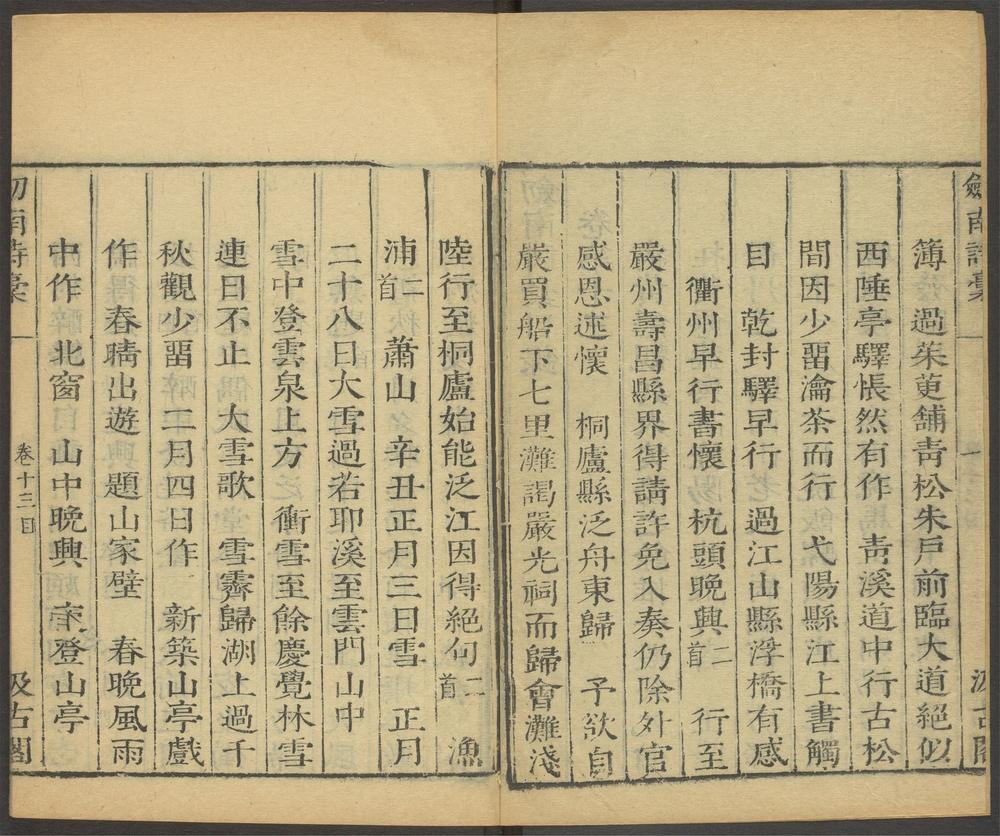 劒南詩稾 一 汲古閣
簿 過茱萸舖青松朱戶前臨大道絕似
西陲亭驛悵然有作 青溪道中行古松
間因少畱瀹茶而行 弋陽縣江上書觸
目 乾封驛早行 過江山縣浮橋有感
衢州早行書懷 杭頭晚興二首 行至
嚴州壽昌縣界得請許免入奏仍除外官
感恩述懷 桐廬縣泛舟東歸 予欲自
嚴買船下七里灘謁嚴光祠而歸會灘淺
陸行至桐廬始能泛江因得絕句二首 漁
浦二首 蕭山 辛丑正月三日雪 正月
二十八日大雪過若耶溪至雲門山中
雪中登雲泉上方 衝雪至餘慶覺林雪
連日不止 大雪歌 雪霽歸湖上過千
秋觀少畱 二月四日作 新築山亭戲
作 春晴出遊 題山家壁 春晚風雨
中作 北窗 山中晚興 春登山亭
劒南詩稾 一 卷十三目 汲古閣